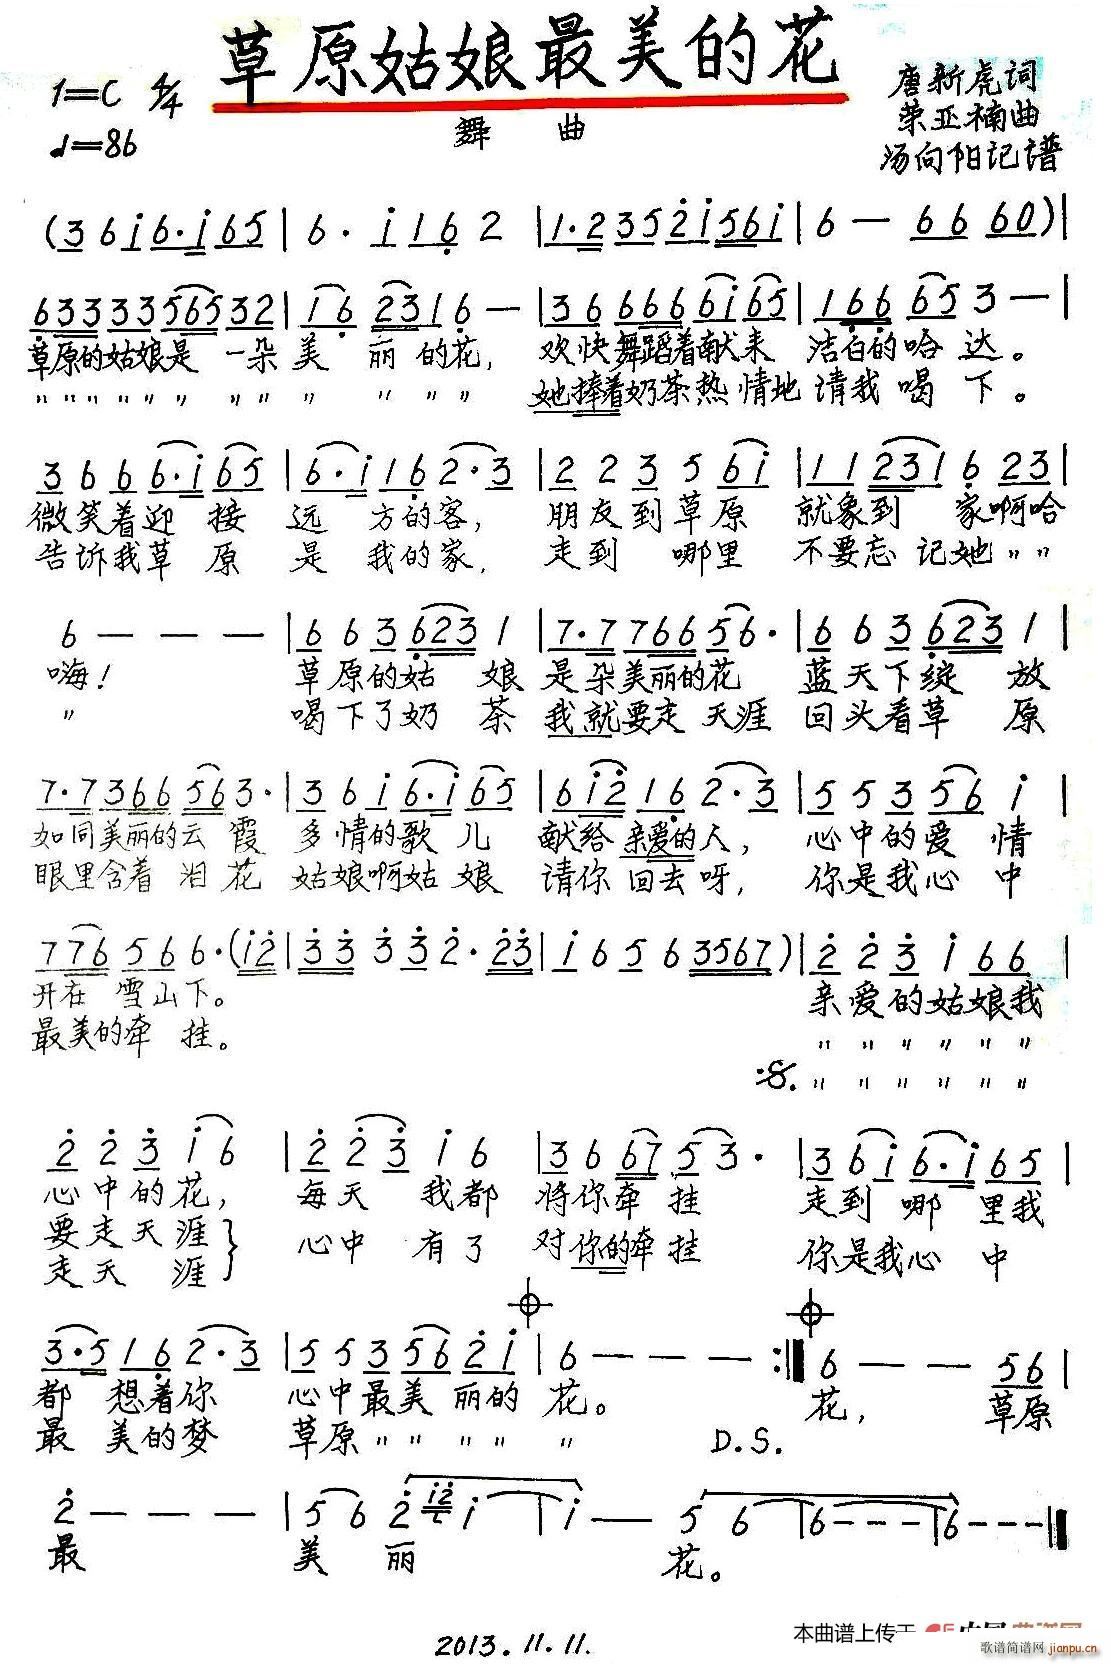 草原姑娘最美的花
1=C 4/4
♩=86
舞 曲
唐新虎词
荣亚楠曲
汤向阳记谱
(3 6 i 6·i 65 | 6· i 1 6 2 | 1·2 35 2i 56i | 6 — 66 60) |
633 33 565 32 | 1 6 23 1 6 — | 36 666 6i 65 | 1 66 65 3 — |
草原的姑娘是 一朵 美 丽 的花, 欢快舞蹈着献来 洁白的哈 达。
" " " " " " " " " " " " 她捧着奶茶热情地 请我 喝 下。
3 6 6 6·i 65 | 6·i 1 6 2·3 | 2 2 3 5 6i | 1 1 23 1 6 23 |
微笑着迎 接 远 方的客, 朋友到草原 就象到 家啊哈
告诉我草 原 是 我的家, 走到 哪里 不要忘 记她 " "
6 — — — | 6 6 3 623 1 | 7·7 7 66 56· | 6 6 3 623 1 |
嗨! 草原的姑 娘 是朵美丽的花 蓝天下绽 放
" 喝下了奶 茶 我就要走 天涯 回头看草 原
7·7 366 56 3· | 3 6 i 6·i 65 | 6 i2 16 2·3 | 5 5 3 56 i |
如同美丽的云 霞 多情的歌 儿 献给 亲爱的人, 心中的爱 情
眼里含着 泪 花 姑娘啊姑 娘 请你 回去呀, 你是我心 中
7 76 5 6 6·(i2 | 3 3 3 3 2· 23 | i 6 5 6 3567) | 2 2 3 i 66 |
开在 雪山下。 亲爱的姑娘我
最美的牵 挂。 " " " " " "
𝄋. " " " " " "
2 2 3 i 6 | 2 2 3 i 6 | 3 6 67 5 3· | 3 6 i 6·i 65 |
心中的花, 每天 我都 将你牵 挂 走到 哪 里我
要走天涯} 心中 有了 对你的牵 挂 你是我心 中
走天 涯
3·5 16 2·3 | 5 5 3 56 2 i | 6 — — — :‖ 6 — — 56 |
都 想着你 心中最美 丽的 花。 花, 草原
最 美的梦 草原 " " " " " D.S.
2 — — — | 5 6 2 i2 i | i — 5 6 | 6 - - - | 6 - - - ‖
最 美 丽 花。
2013.11.11.
本曲谱上传于
歌谱简谱网
jianpu.cn